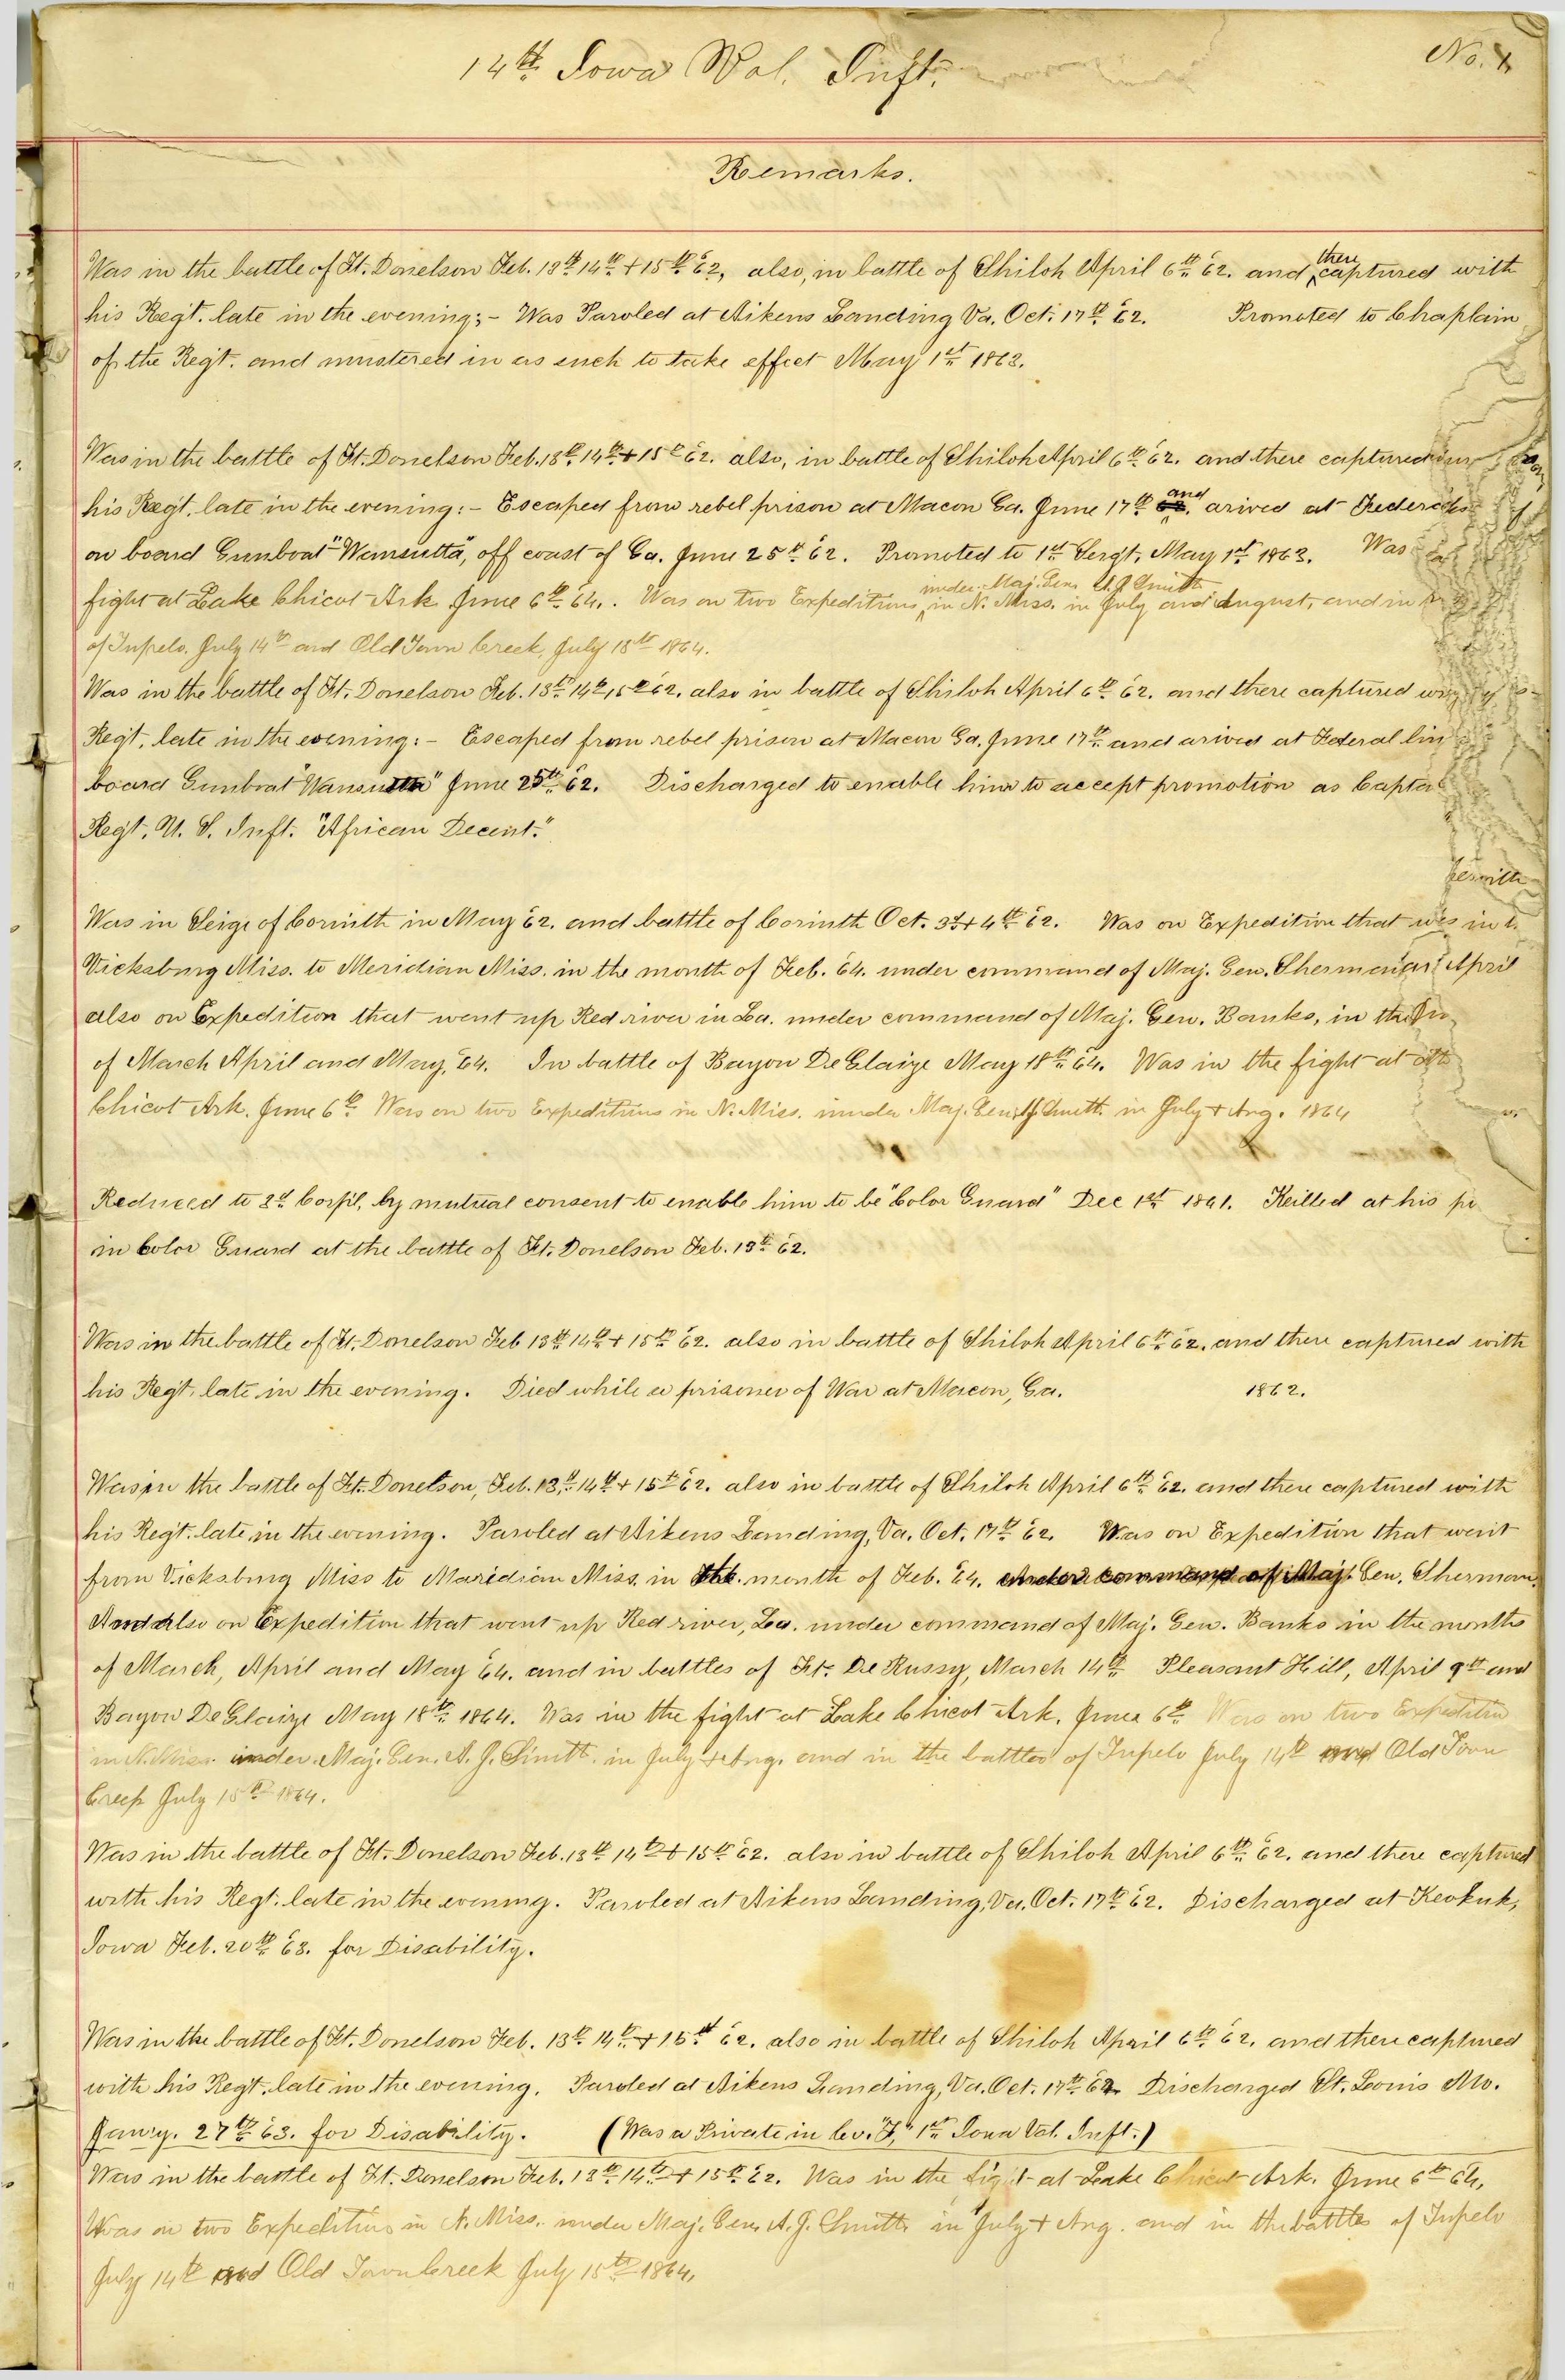 14th Iowa Vol. Inft.
No. 1.
Remarks.
Was in the battle of Ft. Donelson Feb. 13th 14th + 15th '62, also, in battle of Shiloh April 6th '62. and there captured with
his Reg't. late in the evening;- Was Paroled at Aikens Landing Va. Oct. 17th '62. Promoted to Chaplain
of the Reg't. and mustered in as such to take effect May 1st 1863.
Was in the battle of Ft. Donelson Feb. 13th 14th + 15th '62. also, in battle of Shiloh April 6th '62. and there captured
his Reg't. late in the evening:- Escaped from rebel prison at Macon Ga. June 17th and arived at Federal
on board Gunboat "Wamsutta", off coast of Ga. June 25th '62. Promoted to 1st Sergt. May 1st 1863. Was
fight at Lake Chicot Ark. June 6th '64. Was on two Expeditions under Maj. Gen. A. J. Smith in N. Miss. in July and August, and in
of Tupelo. July 14th and Old Town Creek, July 15th 1864.
Was in the battle of Ft. Donelson Feb. 13th 14th 15th '62. also in battle of Shiloh April 6th '62. and there captured
Reg't. late in the evening:- Escaped from rebel prison at Macon Ga. June 17th and arived at Federal lin
board Gunboat "Wamsutta" June 25th '62. Discharged to enable him to accept promotion as Capta
Reg't. U. S. Inft. "African Decent."
Was in Seige of Corinth in May '62. and battle of Corinth Oct. 3d + 4th '62. Was on Expedition that
Vicksburg Miss. to Meridian Miss. in the month of Feb. '64. under command of Maj. Gen. Sherman April
also on Expedition that went up Red river in La. under command of Maj. Gen. Banks, in the
of March April and May, '64. In battle of Bayou De Glaize May 18th '64. Was in the fight at
Chicot Ark. June 6th Was on two Expeditions in N. Miss. under Maj. Gen. A. J. Smith in July + Aug. 1864
Reduced to 3d Corp'l, by mutual consent to enable him to be "Color Guard" Dec 1st 1861. Keilled at his po
in Color Guard at the battle of Ft. Donelson Feb. 13th '62.
Was in the battle of Ft. Donelson Feb 13th 14th + 15th '62. also in battle of Shiloh April 6th '62. and there captured with
his Reg't. late in the evening. Died while a prisoner of War at Macon, Ga. 1862.
Was in the battle of Ft. Donelson, Feb. 13th 14th + 15th '62. also in battle of Shiloh April 6th '62. and there captured with
his Reg't. late in the evening. Paroled at Aikens Landing, Va. Oct. 17th '62. Was on Expedition that went
from Vicksburg Miss to Maridian Miss. in the month of Feb. '64. under command of Maj. Gen. Sherman.
And also on Expedition that went up Red river, La. under command of Maj. Gen. Banks in the months
of March, April and May '64. and in battles of Ft. De Russy, March 14th Pleasant Hill, April 9th and
Bayou De Glaize May 18th 1864. Was in the fight at Lake Chicot Ark. June 6th Was on two Expedition
in N. Miss. under Maj. Gen. A. J. Smith. in July + Aug. and in the battles of Tupelo July 14th and Old Town
Creek July 15th 1864.
Was in the battle of Ft. Donelson Feb. 13th 14th + 15th '62. also in battle of Shiloh April 6th '62. and there captured
with his Regt. late in the evening. Paroled at Aikens Landing, Va. Oct. 17th '62. Discharged at Keokuk,
Iowa Feb. 20th '63. for Disability.
Was in the battle of Ft. Donelson Feb. 13th 14th + 15th '62. also in battle of Shiloh April 6th '62. and there captured
with his Regt. late in the evening. Paroled at Aikens Landing, Va. Oct. 17th '62. Discharged St. Louis Mo.
Jan'y. 27th '63. for Disability. (Was a Private in Co. "F," 1st Iowa Vol. Inft.)
Was in the battle of Ft. Donelson Feb. 13th 14th + 15th '62. Was in the fight at Lake Chicot Ark. June 6th '64.
Was on two Expeditions in N. Miss. under Maj. Gen. A. J. Smith in July + Aug. and in the battles of Tupelo
July 14th and Old Town Creek July 15th 1864.